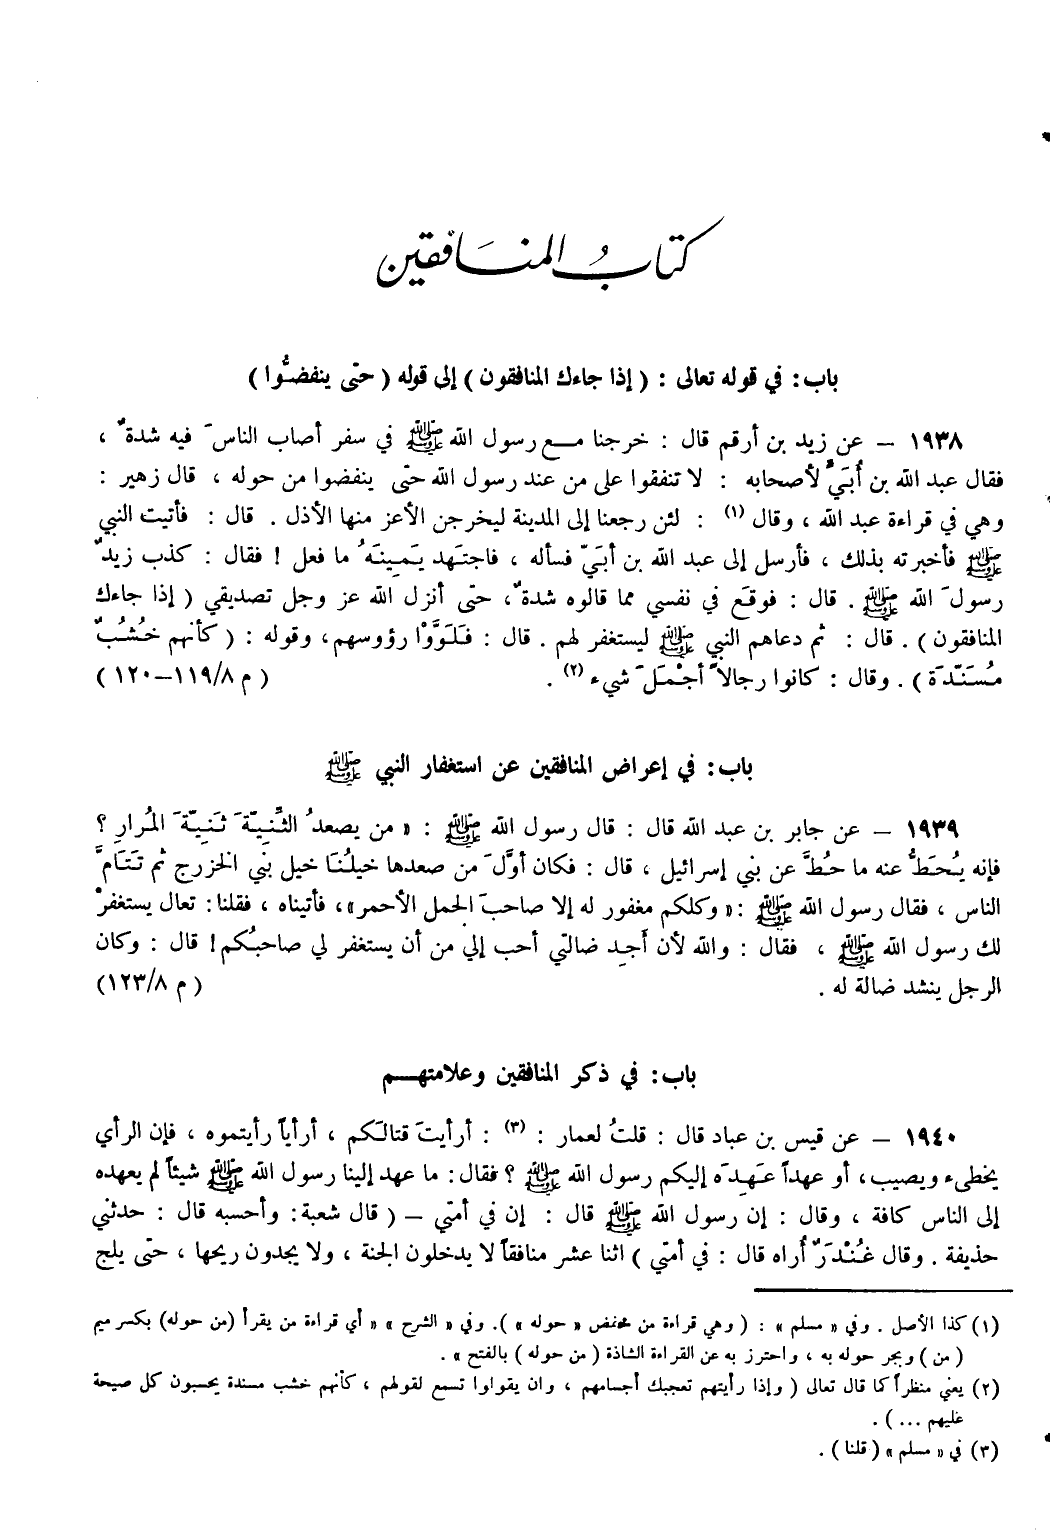 كتابُ المنَافقين
باب: في قوله تعالى : ( إذا جاءك المنافقون ) إلى قوله ( حتى ينفضُّوا )
١٩٣٨ – عن زيد بن أرقم قال : خرجنا مع رسول الله ﷺ في سفر أصاب الناسَ فيه شدةٌ ،
فقال عبد الله بن أُبَيٍّ لأصحابه : لا تنفقوا على من عند رسول الله حتى ينفضوا من حوله ، قال زهير :
وهي في قراءة عبد الله ، وقال (١) : لئن رجعنا إلى المدينة ليخرجن الأعز منها الأذل . قال : فأتيت النبي
ﷺ فأخبرته بذلك ، فأرسل إلى عبد الله بن أبَيّ فسأله ، فاجتهد يَمِينَهُ ما فعل ! فقال : كذب زيدٌ
رسولَ الله ﷺ . قال : فوقَع في نفسي مما قالوه شدةٌ، حتى أنزل الله عز وجل تصديقي ( إذا جاءك
المنافقون ) . قال : ثم دعاهم النبي ﷺ ليستغفر لهم . قال : فَلَوَّوْا رؤوسهم، وقوله : ( كأنهم خُشُبٌ
مُسَنَّدَة ) . وقال : كانوا رجالاً أجْمَلَ شيء (٢) . ( م ٨/١١٩–١٢٠ )
باب: في إعراض المنافقين عن استغفار النبي ﷺ
١٩٣٩ – عن جابر بن عبد الله قال : قال رسول الله ﷺ : « من يصعدُ الثَّنِيّةَ ثَنِيّةَ المُرارِ ؟
فإنه يُحَطُّ عنه ما حُطَّ عن بني إسرائيل ، قال : فكان أوَّلَ من صعدها خيلُنَا خيل بني الخزرج ثم تَتَامَّ
الناس ، فقال رسول الله ﷺ :« وكلكم مغفور له إلا صاحبَ الجمل الأحمر»، فأتيناه ، فقلنا: تعال يستغفرْ
لك رسول الله ﷺ ، فقال : والله لأن أَجِد ضالتي أحب إلي من أن يستغفر لي صاحبُكم! قال : وكان
الرجل ينشد ضالة له . ( م ٨/١٢٣)
باب: في ذكر المنافقين وعلامتهم
١٩٤٠ – عن قيس بن عباد قال : قلتُ لعمار : (٣) : أرأيتَ قتالَكم ، أرأياً رأيتموه ، فإن الرأي
يخطىء ويصيب، أو عهداً عَهِدَه إليكم رسول الله ﷺ ؟ فقال: ما عهد إلينا رسول الله ﷺ شيئاً لم يعهده
إلى الناس كافة ، وقال : إن رسول الله ﷺ قال : إن في أمتي – ( قال شعبة: وأحسبه قال : حدثني
حذيفة . وقال غُنْدَرٌ أُراه قال : في أمتي ) اثنا عشر منافقاً لا يدخلون الجنة ، ولا يجدون ريحها ، حتى يلج
(١) كذا الأصل . وفي « مسلم » : ( وهي قراءة من خفض « حوله » ). وفي « الشرح » « أي قراءة من يقرأ (من حوله) بكسر ميم
( من ) وبجر حوله به ، واحترز به عن القراءة الشاذة ( من حوله ) بالفتح » .
(٢) يعني منظراً كما قال تعالى ( وإذا رأيتهم تعجبك أجسامهم ، وان يقولوا تسمع لقولهم ، كأنهم خشب مسندة يحسبون كل صيحة
عليهم ... ) .
(٣) في « مسلم » ( قلنا ) .